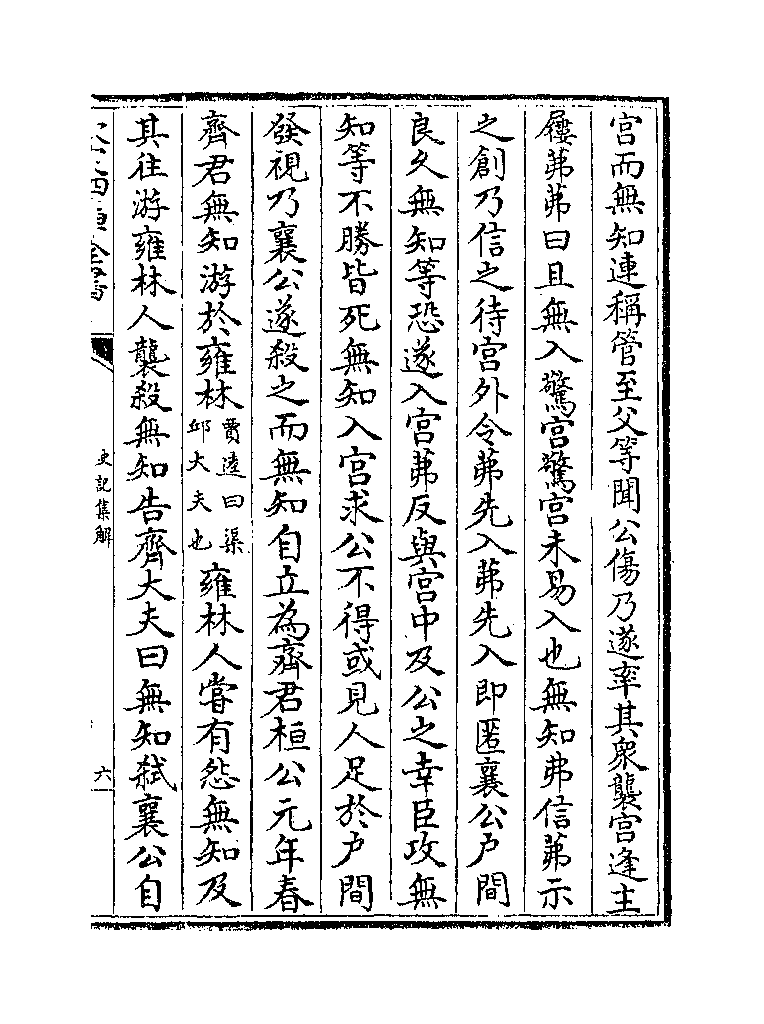 宫而無知連稱管至父等聞公傷乃遂率其衆襲宫逢主
屨茀茀曰且無入驚宫驚宫未易入也無知弗信茀示
之創乃信之待宫外令茀先入茀先入即匿襄公户間
良久無知等恐遂入宫茀反與宫中及公之幸臣攻無
知等不勝皆死無知入宫求公不得或見人足於户間
發視乃襄公遂殺之而無知自立為齊君桓公元年春
齊君無知游於雍林賈逵曰渠邱大夫也雍林人嘗有怨無知及
其往游雍林人襲殺無知告齊大夫曰無知弑襄公自
史記集解
六